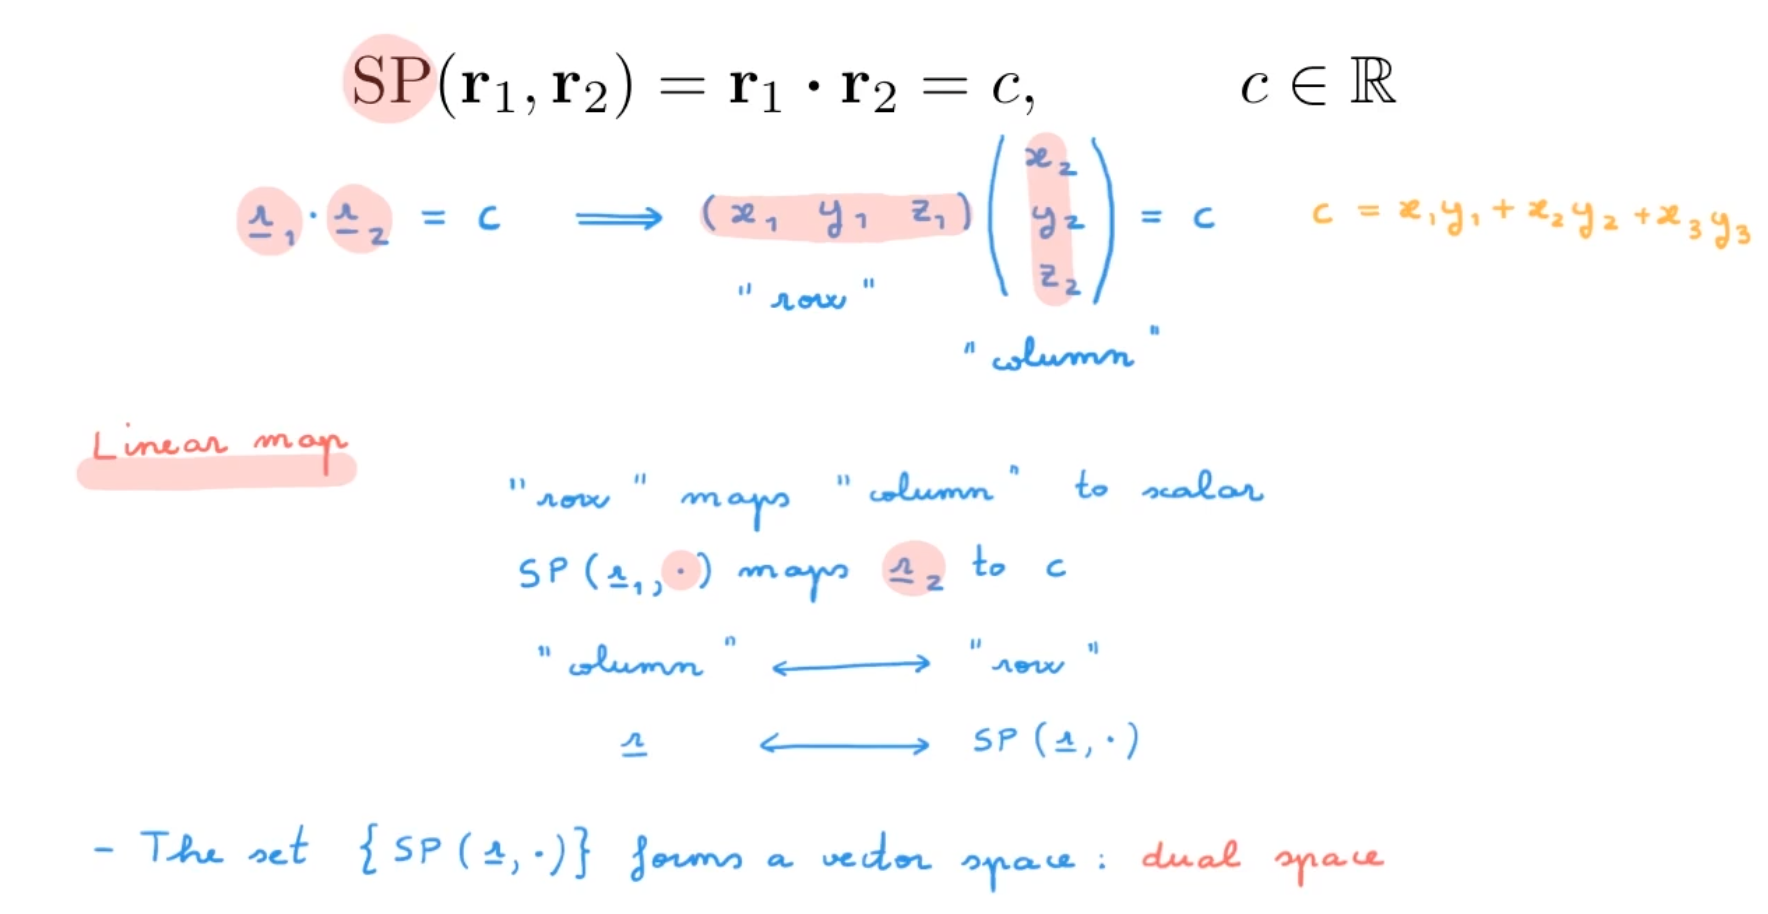 SP(r₁, r₂) = r₁ · r₂ = c, c ∈ ℝ
r₁ · r₂ = c ⟹ (x₁ y₁ z₁) (x₂ y₂ z₂) = c c = x₁y₁ + x₂y₂ + x₃y₃
"row"
"column"
Linear map
"row" maps "column" to scalar
SP(r₁, ·) maps r₂ to c
"column" ⟷ "row"
r ⟷ SP(r, ·)
- The set {SP(r, ·)} forms a vector space : dual space